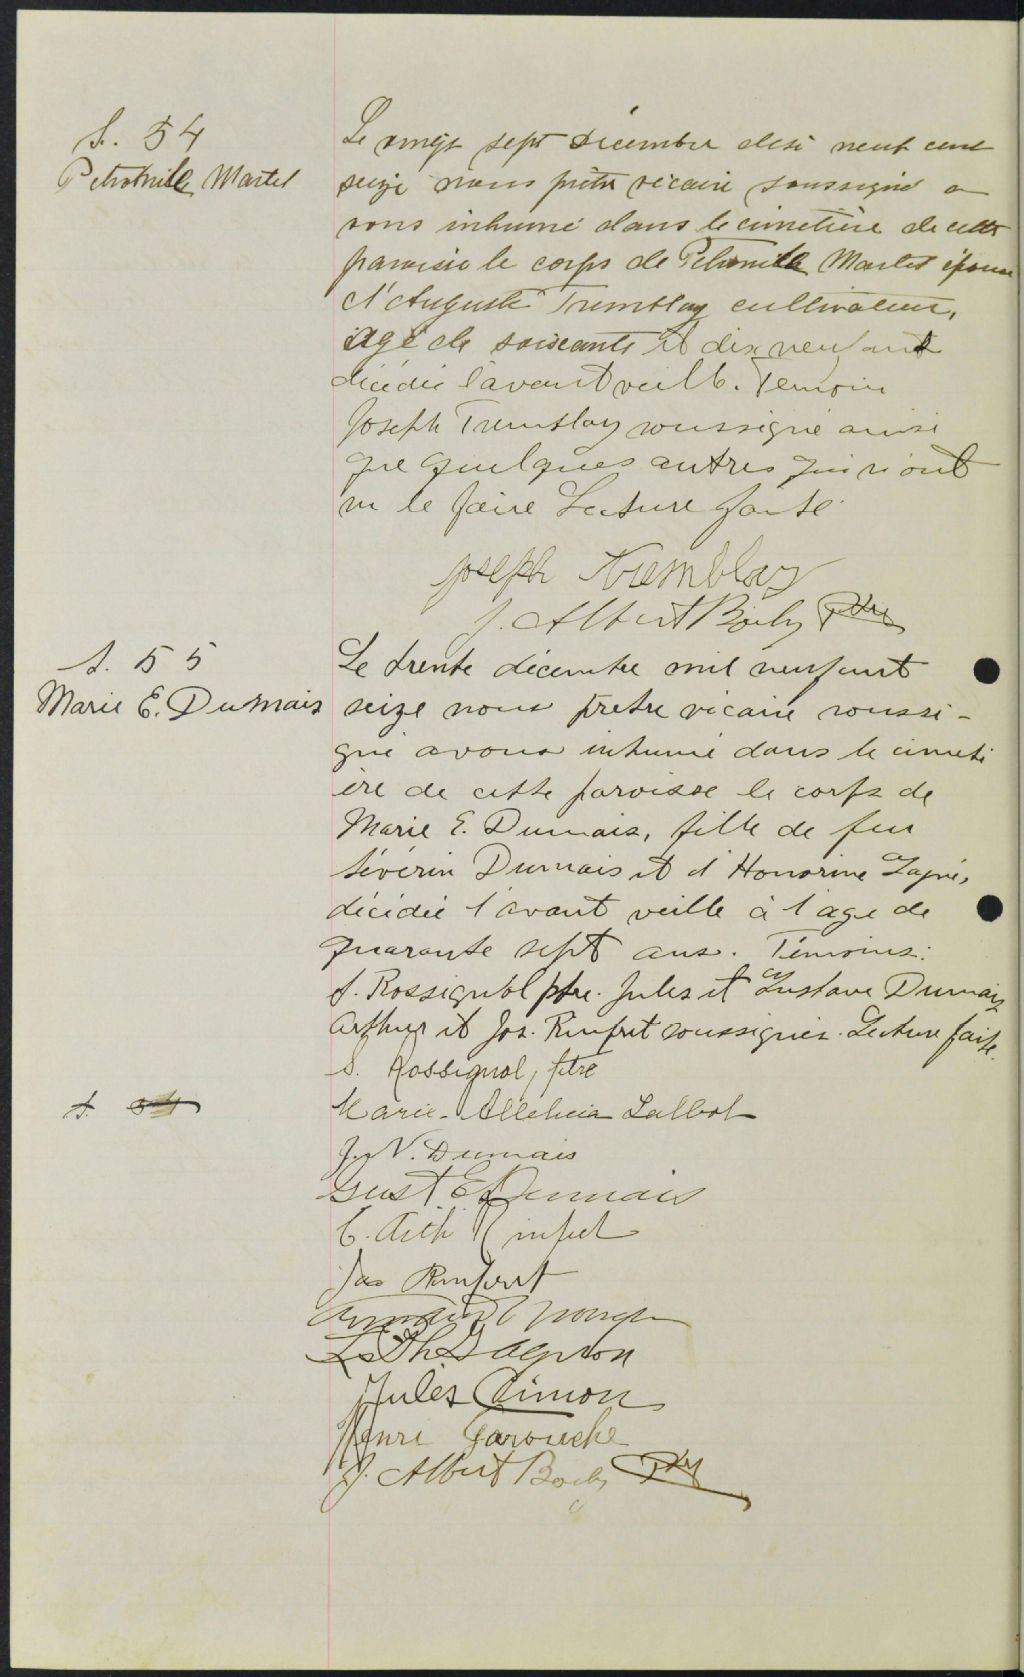 S. 54
Petronille Martel
Le vingt sept décembre dix neuf cent
seize nous prêtre vicaire soussigné a
vons inhumé dans le cimetière de cette
paroisse le corps de Petronille Martel épouse
d'Auguste Tremblay cultivateur,
agé de soixante et dix neuf ans
décédée l'avant veille. Temoin
Joseph Tremblay soussigné ainsi
que quelques autres qui n'ont
su le faire Lecture faite
Joseph Tremblay
J. Albert Boily Ptre
S. 55
Marie E. Dumais
Le trente décembre mil neuf cent
seize nous pretre vicaire soussi-
gné avons inhumé dans le cimeti
ère de cette paroisse le corps de
Marie E. Dumais, fille de feu
Sévérin Dumais et d'Honorine
décédée l'avant veille à l'age de
quarante sept ans. Témoins:
S. Rossignol ptre. Jules et Gustave Dumais
Arthur et Jos. Rinfret soussignés. Lecture faite.
S. Rossignol, ptre
S. 54
Marie Talbot
J. N. Dumais
Gust E Dumais
C. Arth Rinfret
Jos Rinfret
Ls Th Gagnon
Jules Simon
Henri Larouche
J. Albert Boily Ptre